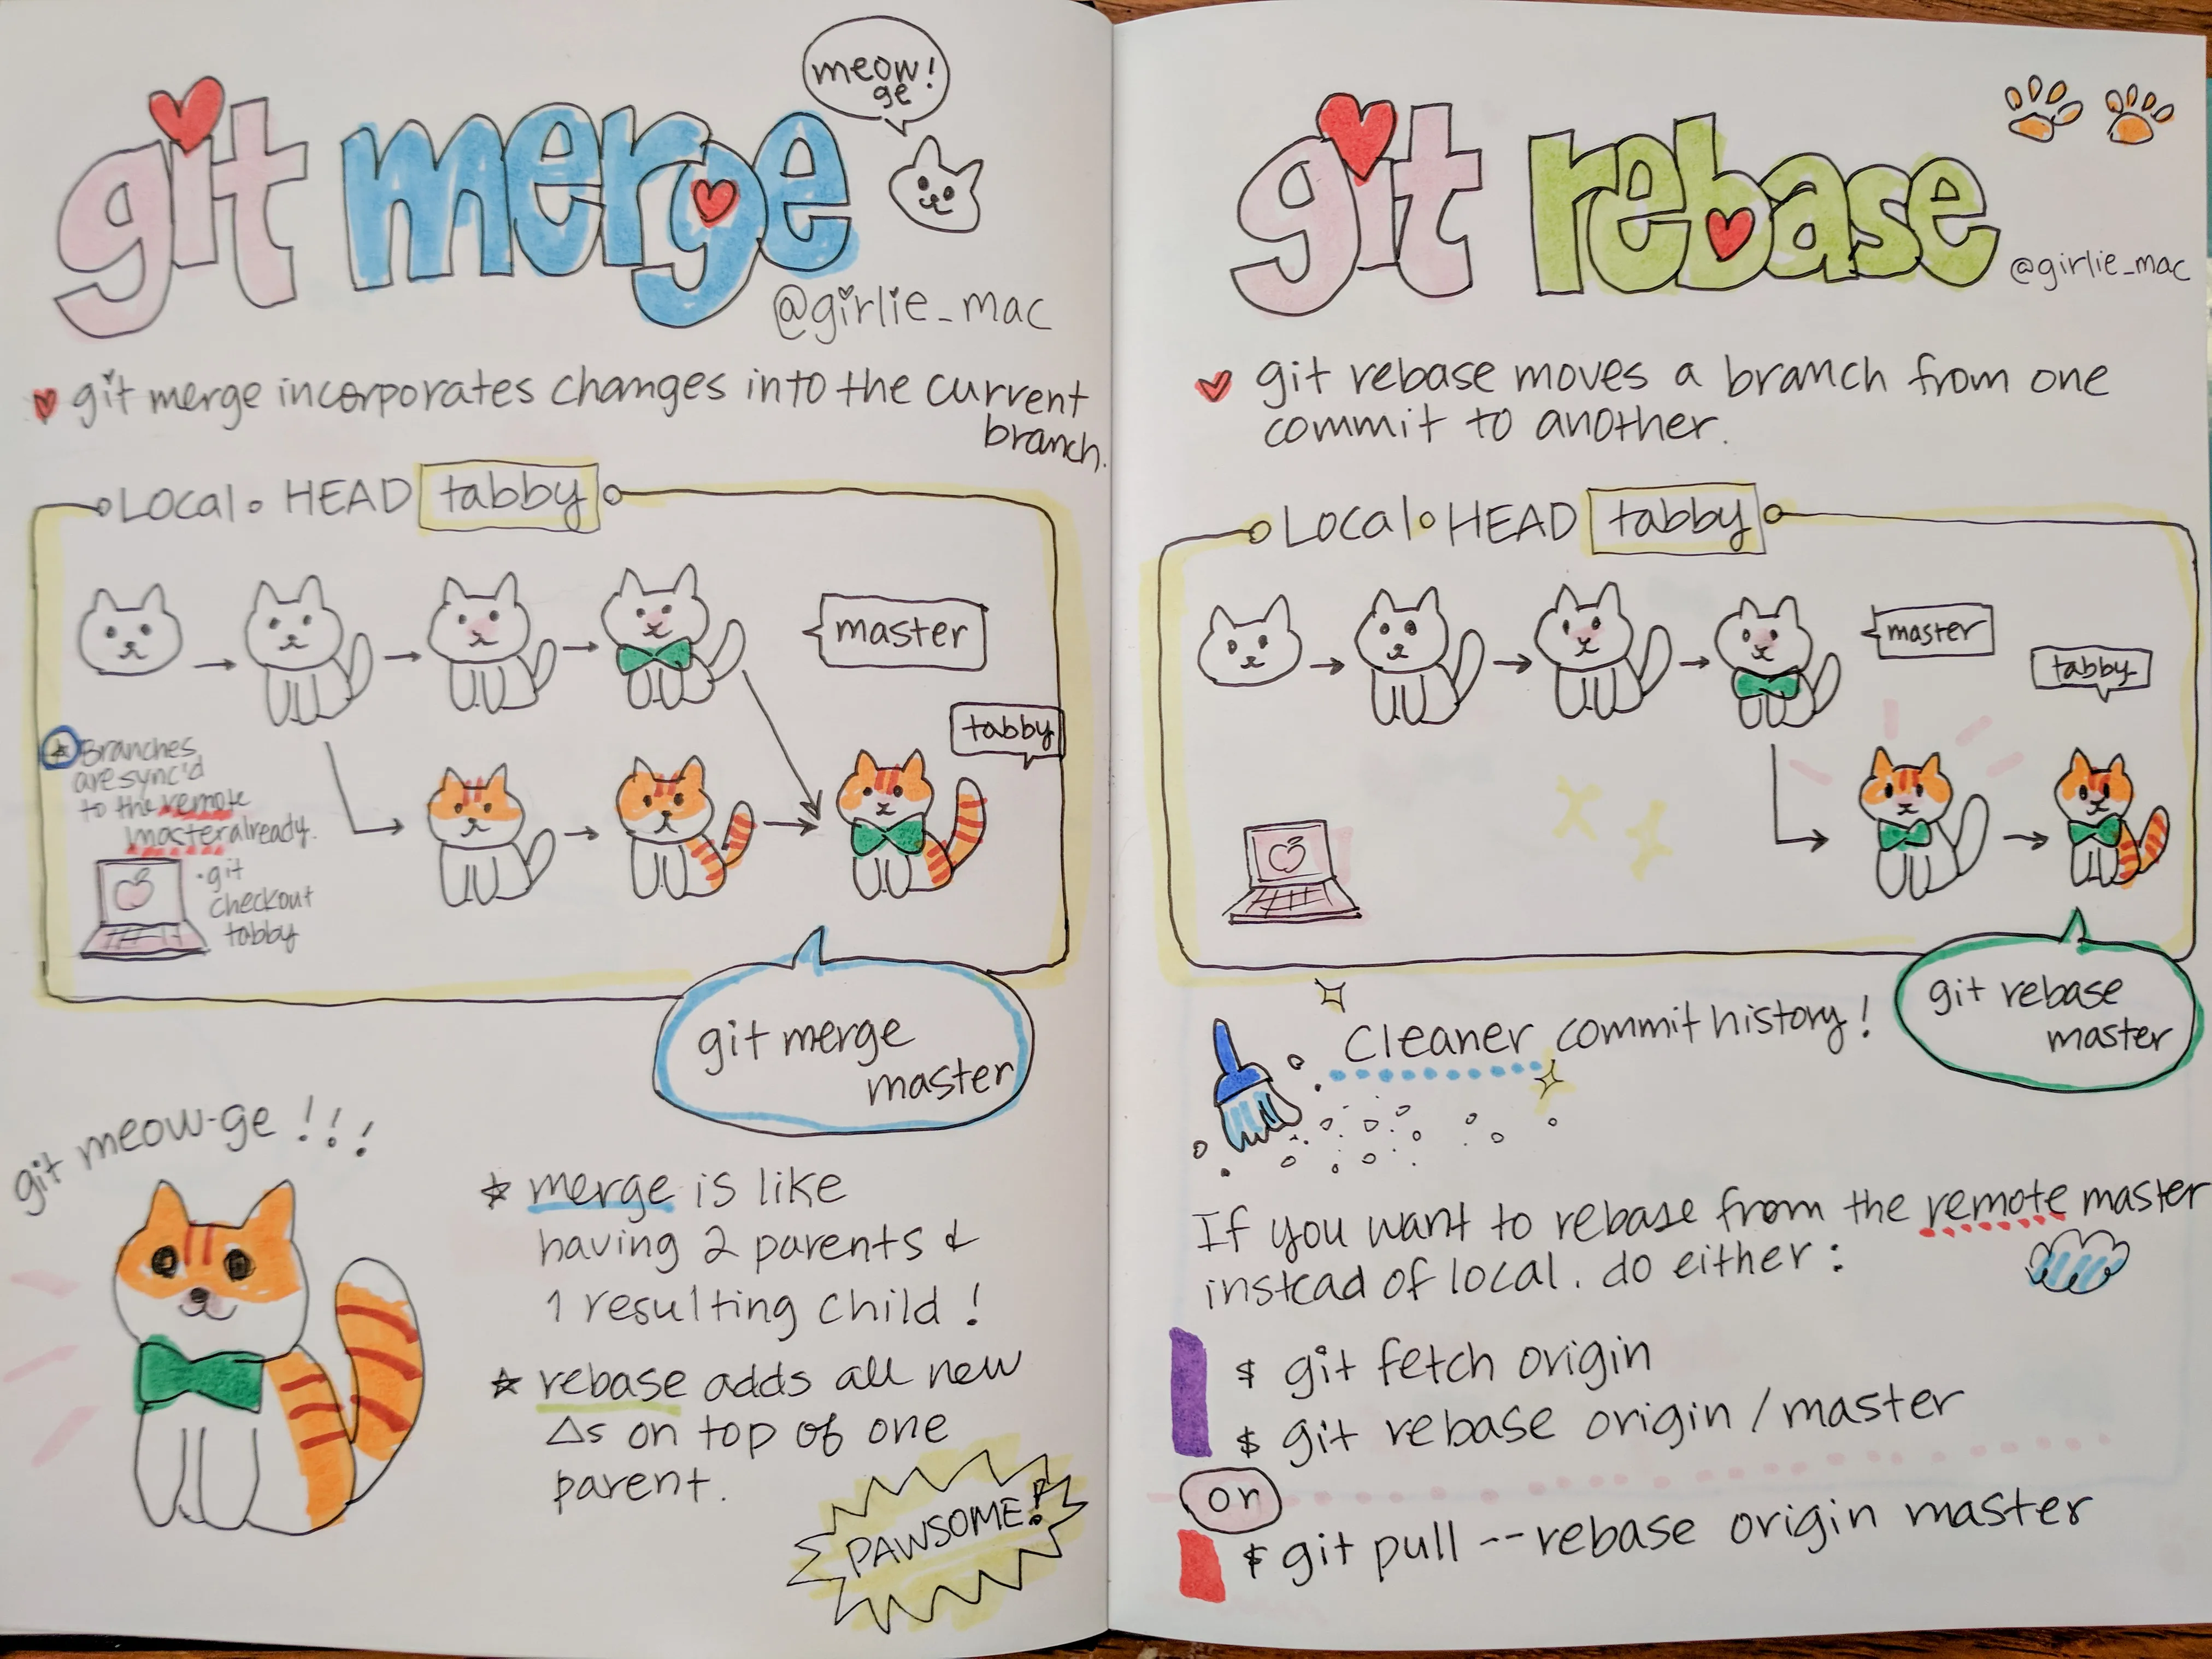 git merge
meow!
ge
@girlie_mac
git merge incorporates changes into the current
branch.
Local • HEAD tabby
master
tabby
* Branches
are sync'd
to the remote
master already.
• git
checkout
tabby
git merge
master
git meow-ge !!!
* merge is like
having 2 parents &
1 resulting child !
* rebase adds all new
Δs on top of one
parent.
PAWSOME!
git rebase
@girlie_mac
git rebase moves a branch from one
commit to another.
Local • HEAD tabby
master
tabby
git rebase
master
Cleaner commit history!
If you want to rebase from the remote master
instead of local. do either:
$ git fetch origin
$ git rebase origin/master
or
$ git pull --rebase origin master